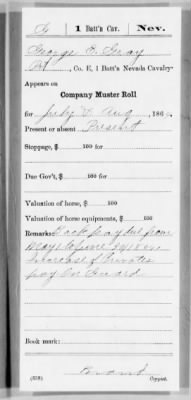 G | 1 Batt'n Cav. | Nev.
George E. Gray
Pvt, Co. E, 1 Batt'n Nevada Cavalry.
Appears on
Company Muster Roll
for July & Aug, 186
Present or absent Present
Stoppage, $ 100 for
Due Gov't, $ 100 for
Valuation of horse, $ 100
Valuation of horse equipments, $ 100
Remarks: Back pay due from
May to June
Increase of Privates
pay On Guard
Book mark:
(358)
Copyist.